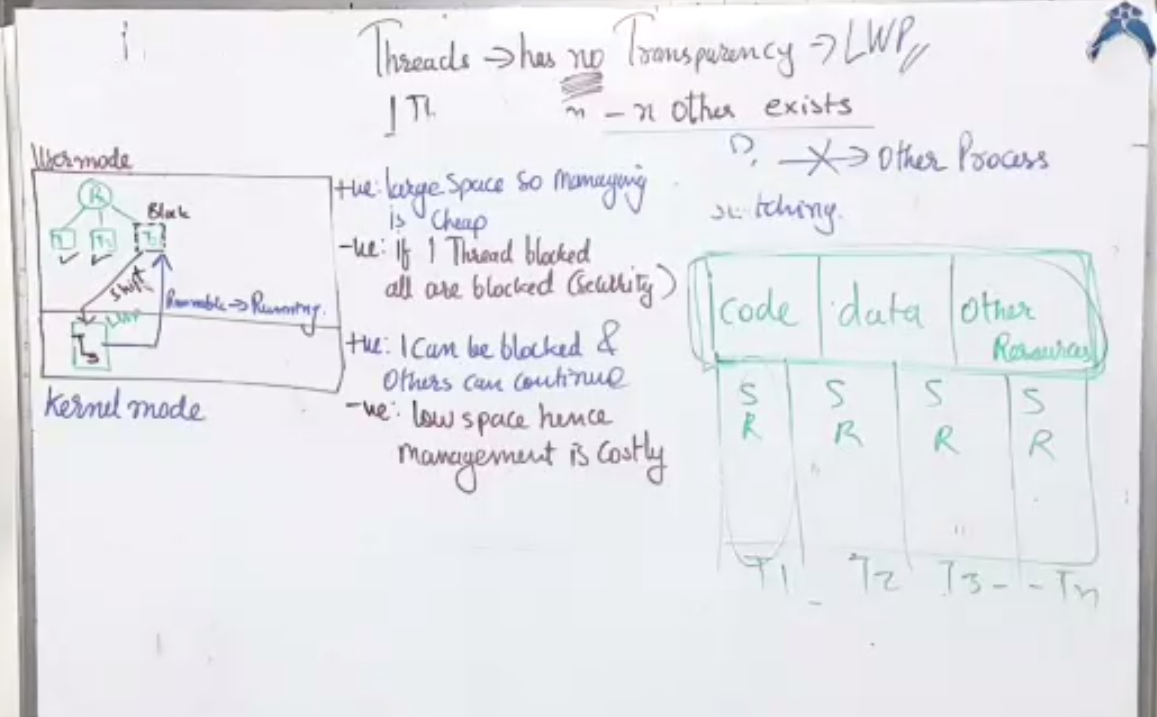 Threads → has no Transparency → LWP
n - n other exists
→ Other Process
switching.
Usermode
R
Block
T1 T2 T3
shift
Runnable → Running.
LWP
Kernel mode
+ve: large space so managing
is cheap
-ve: If 1 Thread blocked
all are blocked (Security)
+ve: 1 Can be blocked &
Others can continue
-ve: low space hence
management is costly
code data Other
Resources
S S S S
R R R R
T1 T2 T3 - - Tn